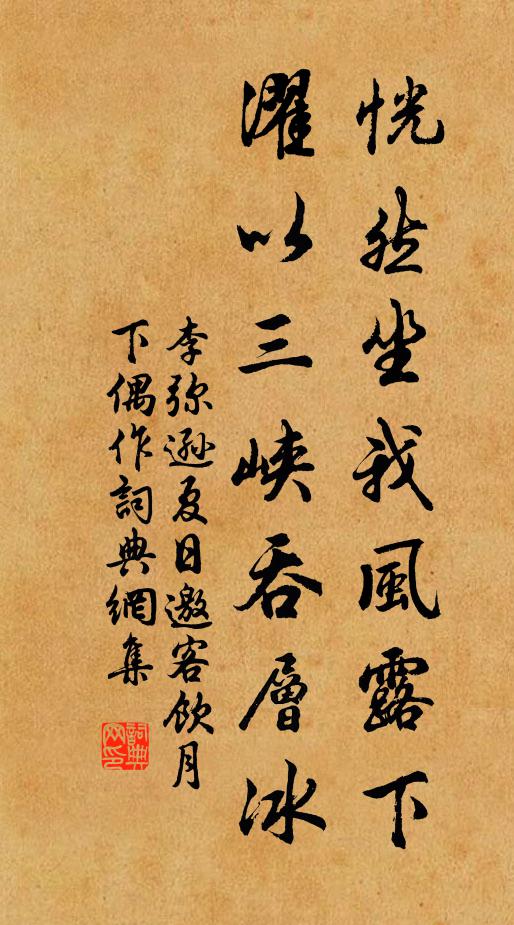 恍然坐我風露下
濯以三峡吞層冰
李弥遜夏日邀客飲月
下偶作詞典網集
詞典
网印